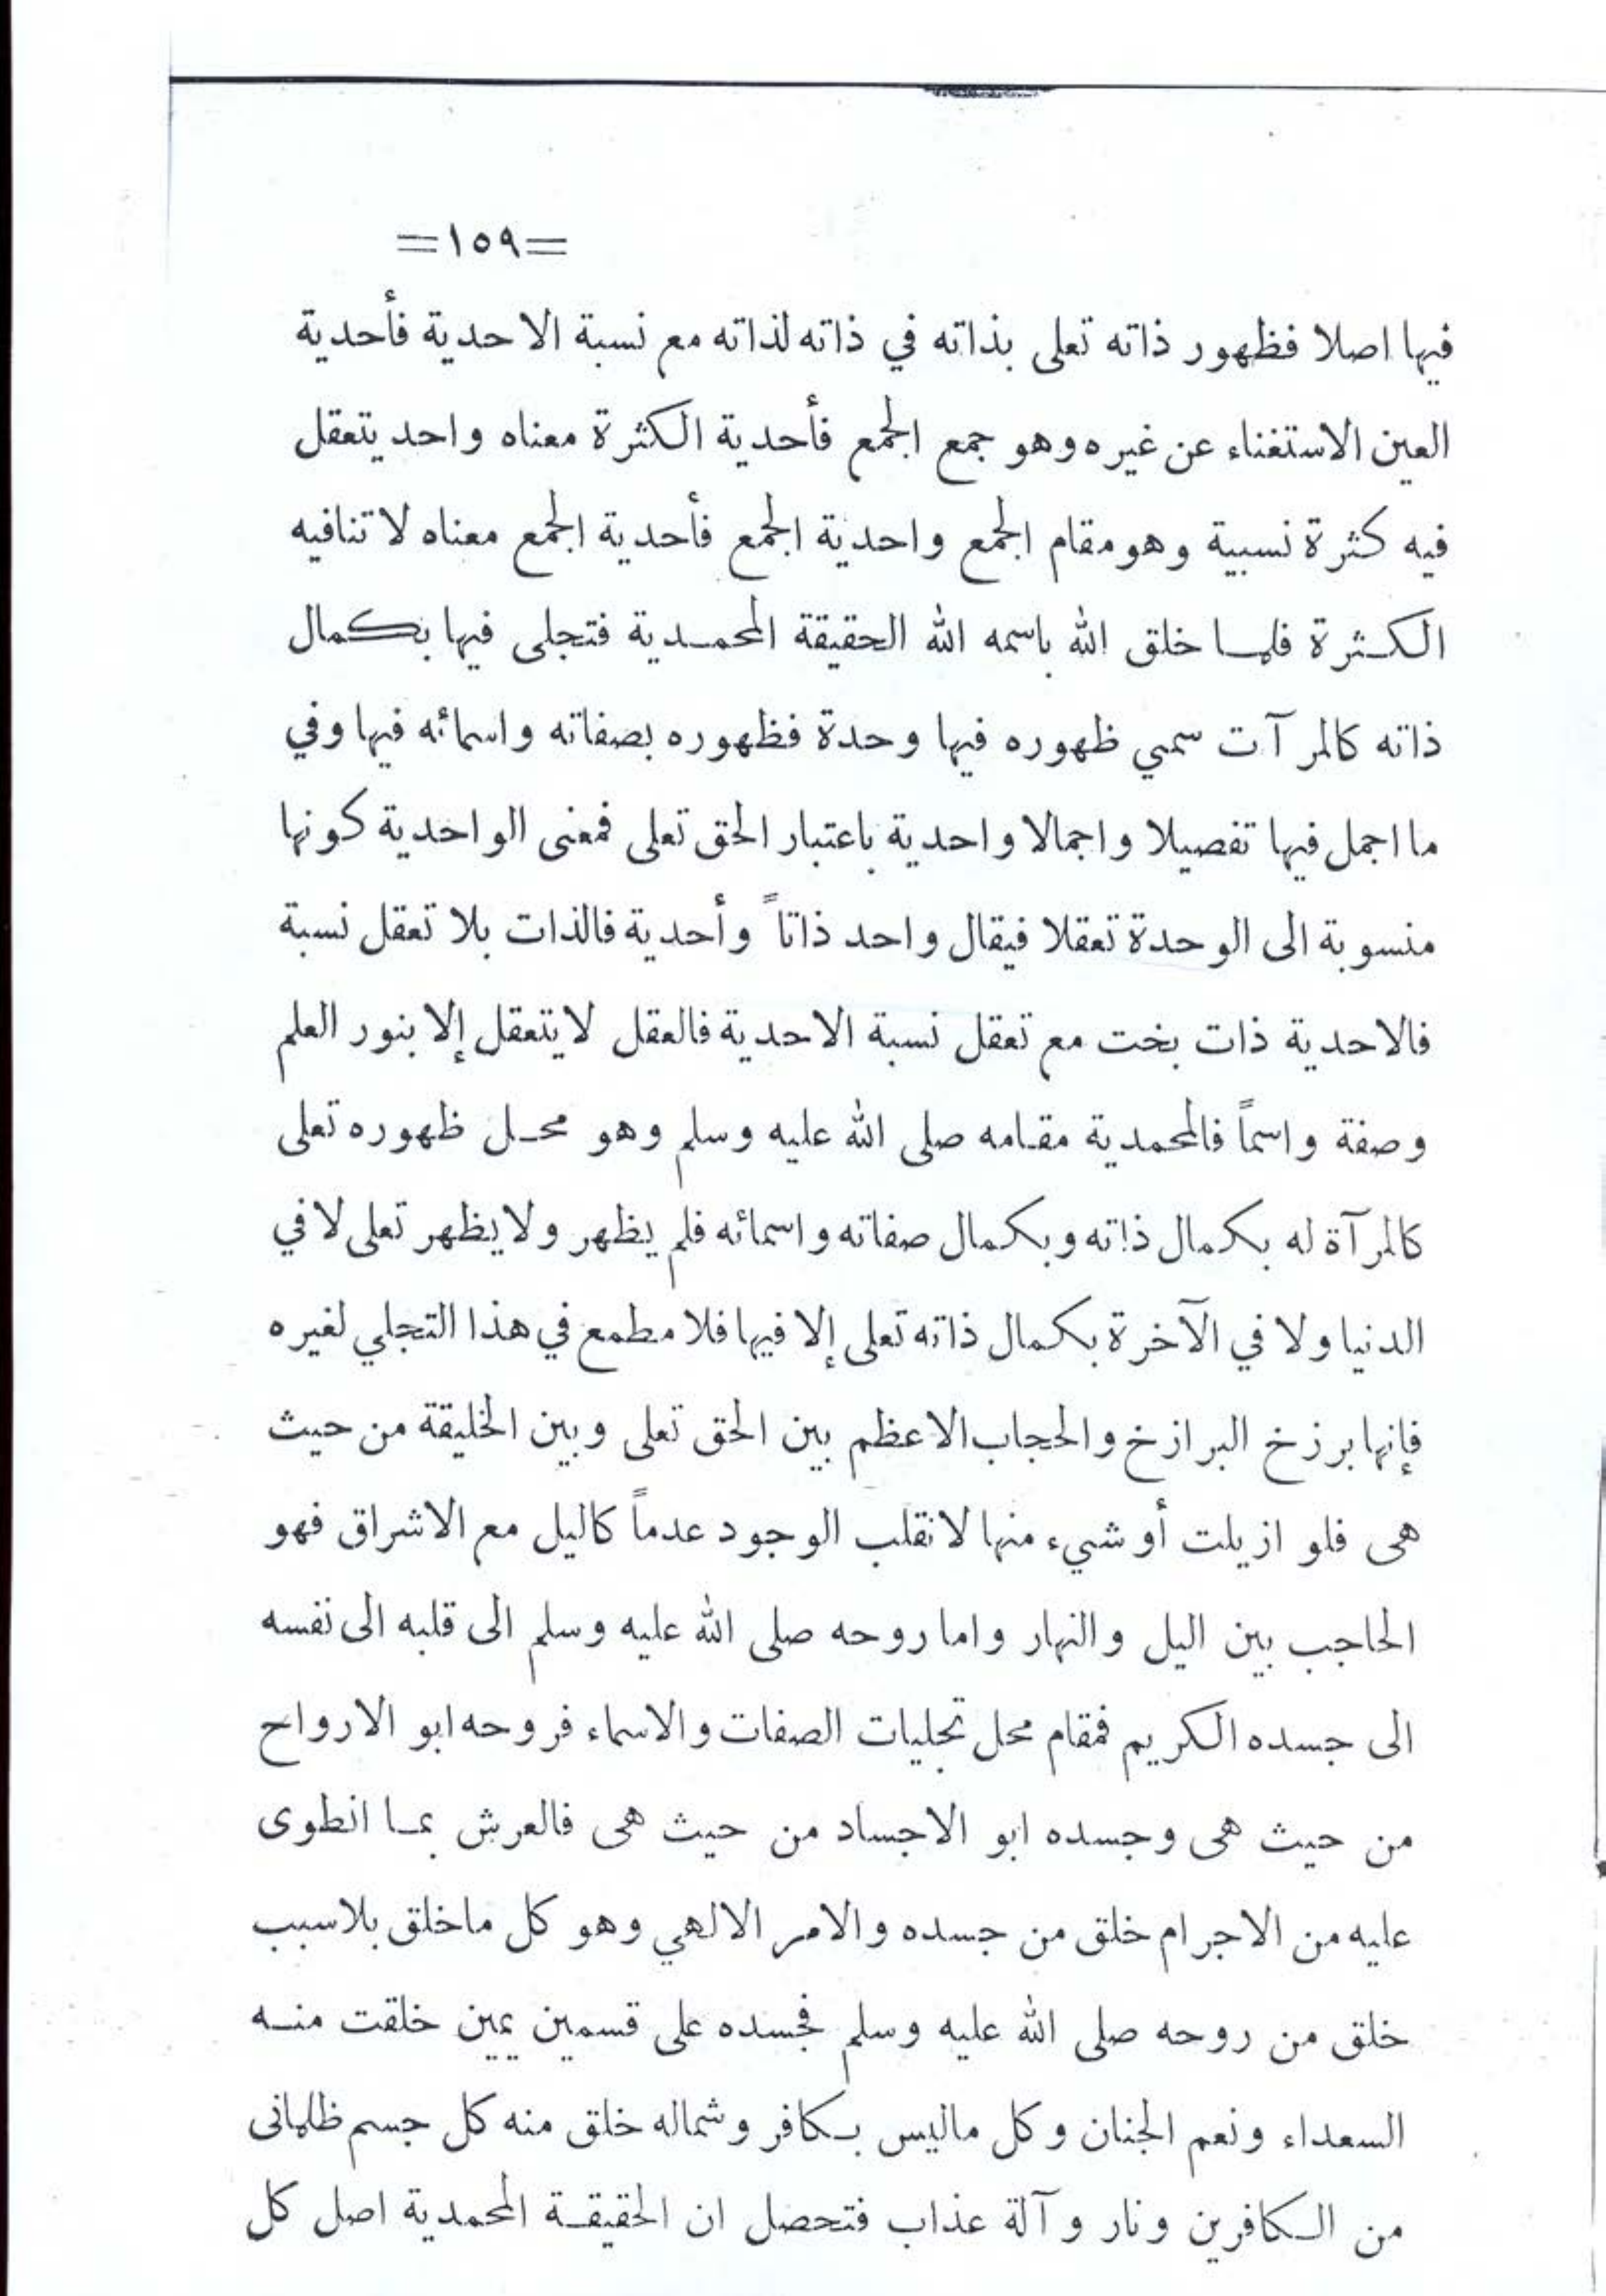 =١٥٩=
فيها اصلا فظهور ذاته تعلى بذاته في ذاته لذاته مع نسبة الاحدية فأحدية
العين الاستغناء عن غيره وهو جمع الجمع فأحدية الكثرة معناه واحد يتعقل
فيه كثرة نسبية وهو مقام الجمع واحدية الجمع فأحدية الجمع معناه لا تنافيه
الكثرة فلما خلق الله باسمه الله الحقيقة المحمدية فتجلى فيها بكمال
ذاته كالمرآت سمي ظهوره فيها وحدة فظهوره بصفاته واسمائه فيها وفي
ما اجمل فيها تفصيلا واجمالا واحدية باعتبار الحق تعلى فمعنى الواحدية كونها
منسوبة الى الوحدة تعقلا فيقال واحد ذاتاً وأحدية فالذات بلا تعقل نسبة
فالاحدية ذات بخت مع تعقل نسبة الاحدية فالعقل لا يتعقل إلا بنور العلم
وصفة واسماً فالمحمدية مقامه صلى الله عليه وسلم وهو محل ظهوره تعلى
كالمرآة له بكمال ذاته وبكمال صفاته واسمائه فلم يظهر ولا يظهر تعلى لا في
الدنيا ولا في الآخرة بكمال ذاته تعلى إلا فيها فلا مطمع في هذا التجلي لغيره
فإنها برزخ البرازخ والحجاب الاعظم بين الحق تعلى وبين الخليقة من حيث
هى فلو ازيلت أو شيء منها لانقلب الوجود عدماً كاليل مع الاشراق فهو
الحاجب بين اليل والنهار واما روحه صلى الله عليه وسلم الى قلبه الى نفسه
الى جسده الكريم فمقام محل تجليات الصفات والاسماء فروحه ابو الارواح
من حيث هى وجسده ابو الاجساد من حيث هى فالعرش بما انطوى
عليه من الاجرام خلق من جسده والامر الالهي وهو كل ماخلق بلاسبب
خلق من روحه صلى الله عليه وسلم فجسده على قسمين يمين خلقت منه
السعداء ونعم الجنان وكل ماليس بكافر وشماله خلق منه كل جسم ظلمانى
من الكافرين ونار وآلة عذاب فتحصل ان الحقيقة المحمدية اصل كل